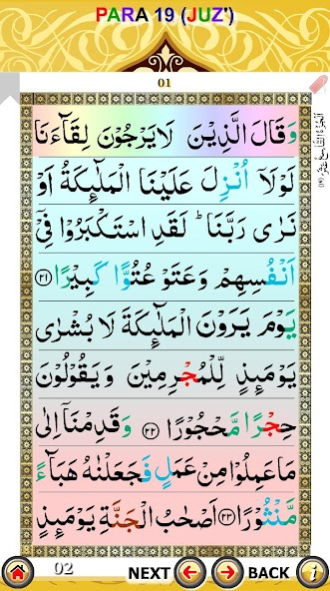 PARA 19 (JUZ')
01
وَقَالَ الَّذِيْنَ لَا يَرْجُوْنَ لِقَآءَنَا
لَوْلَاۤ اُنْزِلَ عَلَيْنَا الْمَلٰٓئِكَةُ اَوْ
نَرٰى رَبَّنَا ؕ لَقَدِ اسْتَكْبَرُوْا فِیْۤ
اَنْفُسِهِمْ وَعَتَوْ عُتُوًّا كَبِيْرًا ۝۲۱
يَوْمَ يَرَوْنَ الْمَلٰٓئِكَةَ لَا بُشْرٰى
يَوْمَئِذٍ لِّلْمُجْرِمِيْنَ وَيَقُوْلُوْنَ
حِجْرًا مَّحْجُوْرًا ۝۲۲ وَقَدِمْنَاۤ اِلٰى
مَا عَمِلُوْا مِنْ عَمَلٍ فَجَعَلْنٰهُ هَبَآءً
مَّنْثُوْرًا ۝۲۳ اَصْحٰبُ الْجَنَّةِ يَوْمَئِذٍ
02 NEXT BACK